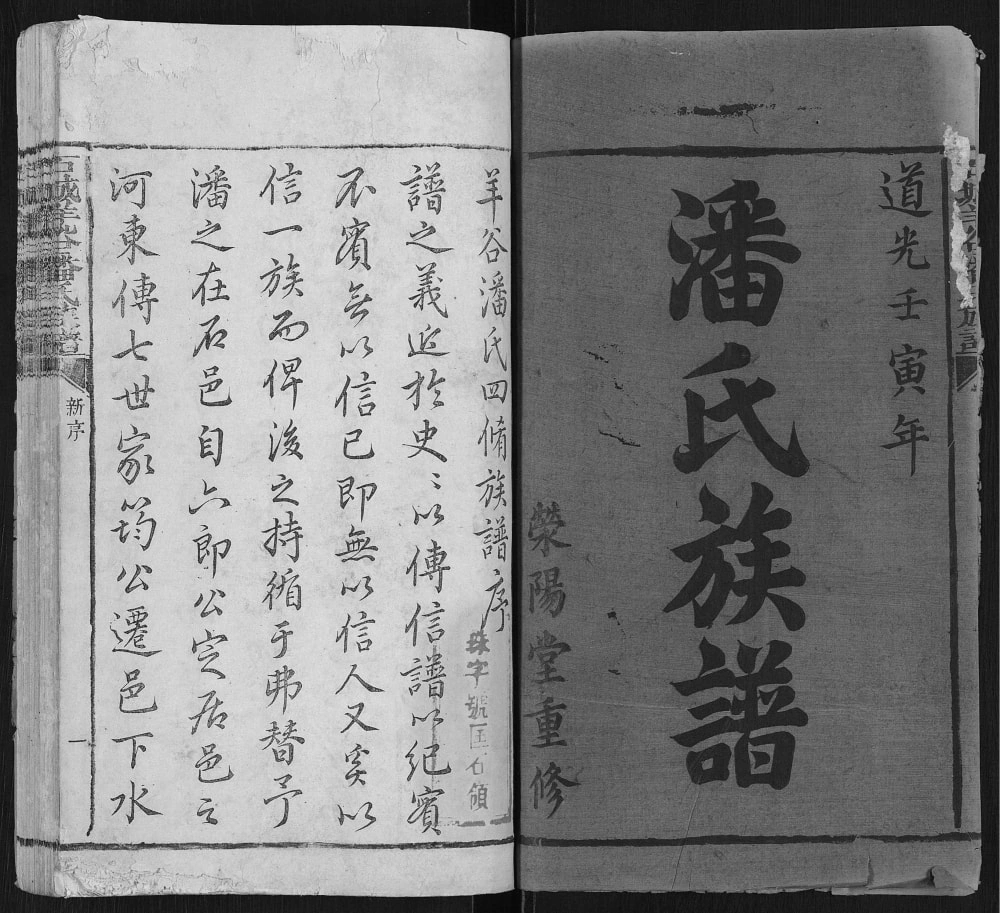 道光壬寅年
潘氏族譜
滎陽堂重修
羊谷潘氏四脩族譜序
珠字號匡石領
譜之義近於史〻以傳信譜以紀實
不實無以信已即無以信人又奚以
信一族而俾後之持循于弗替予
潘之在石邑自六郎公定居邑之
河東傳七世家筠公遷邑下水
石城羊谷潘氏族譜
新序
一